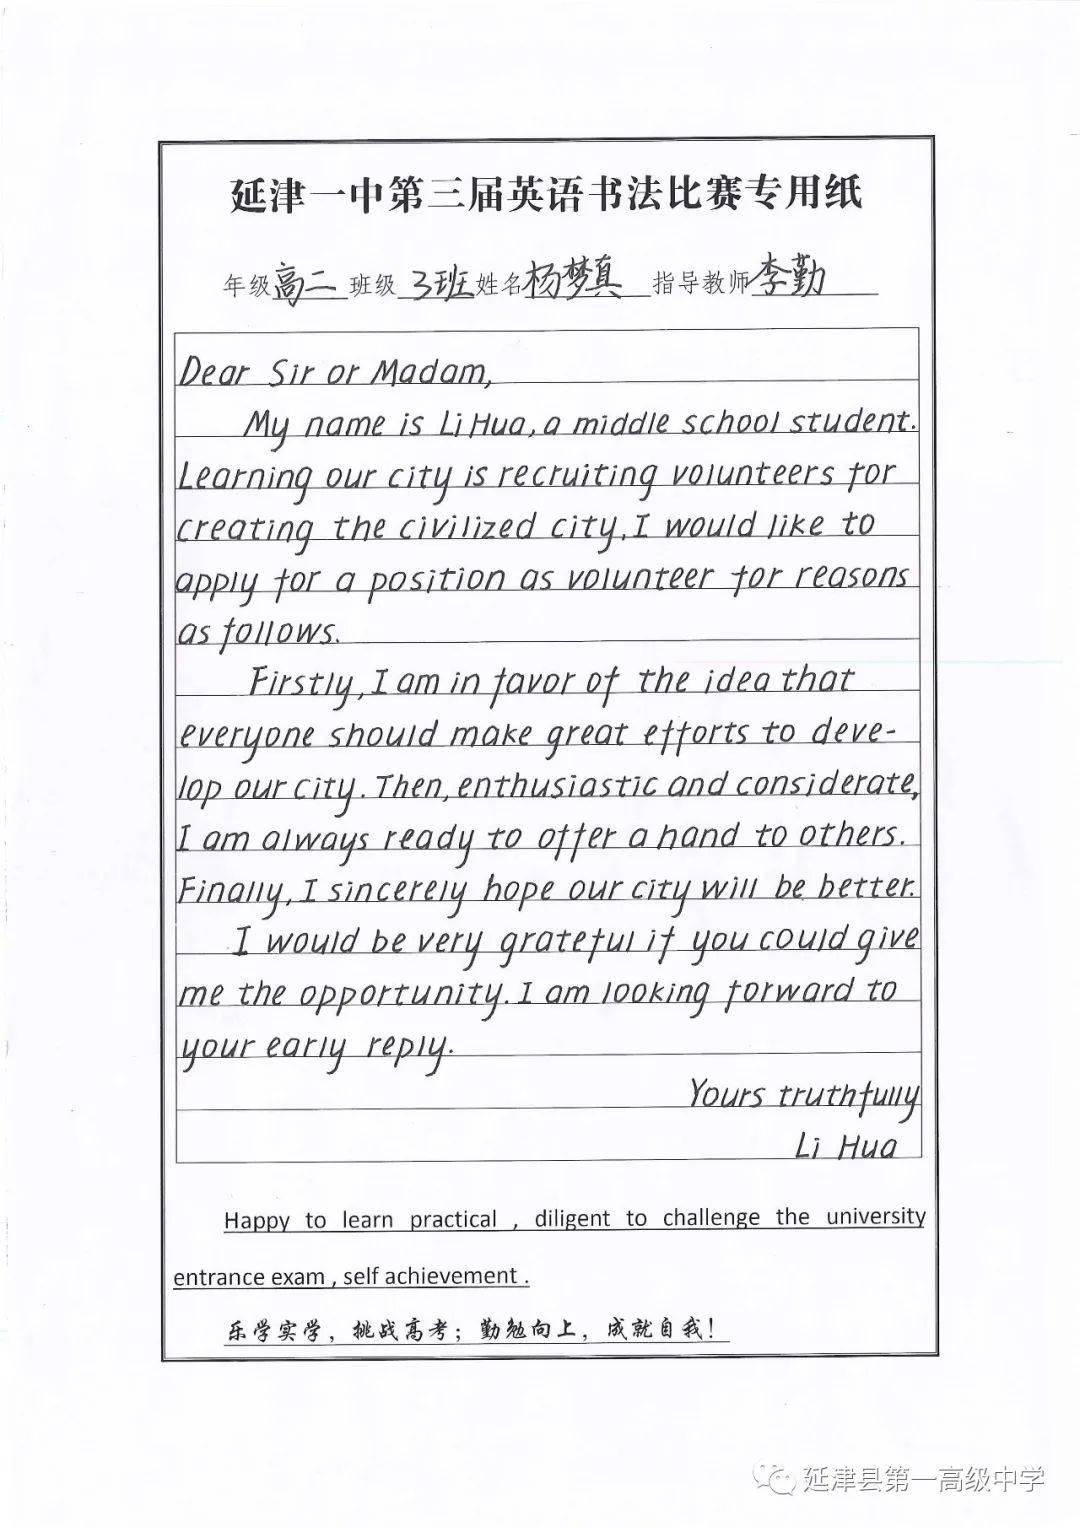 延津一中第三届英语书法比赛专用纸
年级高二 班级 3班 姓名杨梦真 指导教师李勤
Dear Sir or Madam,
My name is Li Hua, a middle school student.
Learning our city is recruiting volunteers for
creating the civilized city, I would like to
apply for a position as volunteer for reasons
as follows.
Firstly, I am in favor of the idea that
everyone should make great efforts to deve-
lop our city. Then, enthusiastic and considerate,
I am always ready to offer a hand to others.
Finally, I sincerely hope our city will be better.
I would be very grateful if you could give
me the opportunity. I am looking forward to
your early reply.
Yours truthfully
Li Hua
Happy to learn practical , diligent to challenge the university
entrance exam , self achievement .
乐学实学，挑战高考；勤勉向上，成就自我！
延津县第一高级中学